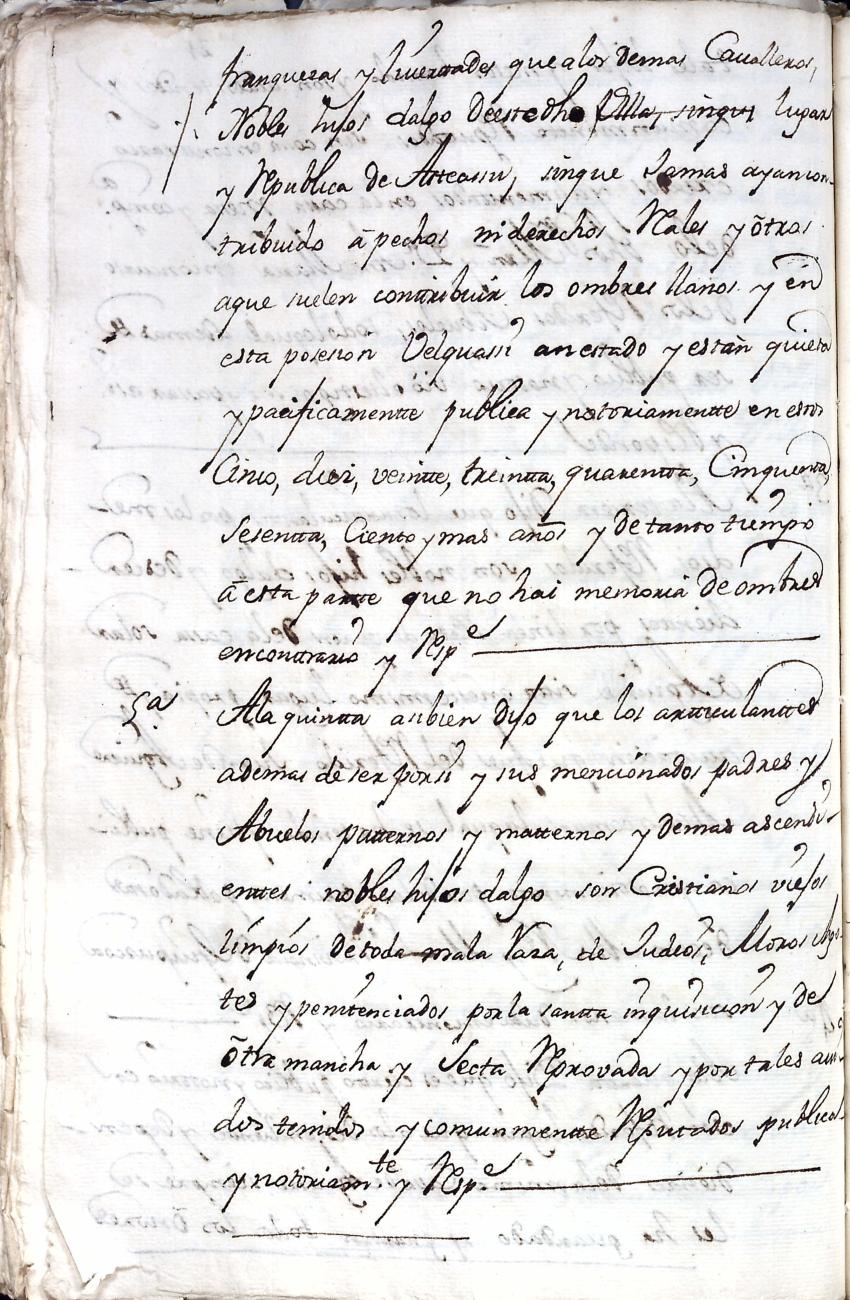 franquezas y livertades que a los demas Cavalleros,
Nobles hijos dalgo de este dho Villa, sin que lugar
y Republica de Atteassu, sin que Jamas ayan con-
tribuido á pechos ni derechos Rales y õtros
aque suelen conttribuir los ombres llanos y en
esta posesion Velquassi an estado y estañ quieta
y pacificamentte publica y notoriamentte en estos
Cinco, diez, veintte, treintta, quarentta, Cinquenta,
Sesentta, Ciento y mas años y de tanto tiempo
á esta partte que no hai memoria de ombres
en conttrario y Resp.e
5.a
A la quintta asibien dijo que los artticulanttes
ademas de ser por si y sus mencionados padres y
Abuelos patternos y matternos y demas ascendi-
enttes nobles hijos dalgo son Cristianos viejos
limpios de toda mala Raza, de Judios, Moros Ago-
tes y penitenciados por la santta inquisicion y de
õtra mancha y Secta Reprovada y por tales avi-
dos tenidos y comunmentte Reputados publica
y notoriam.te y Resp.e